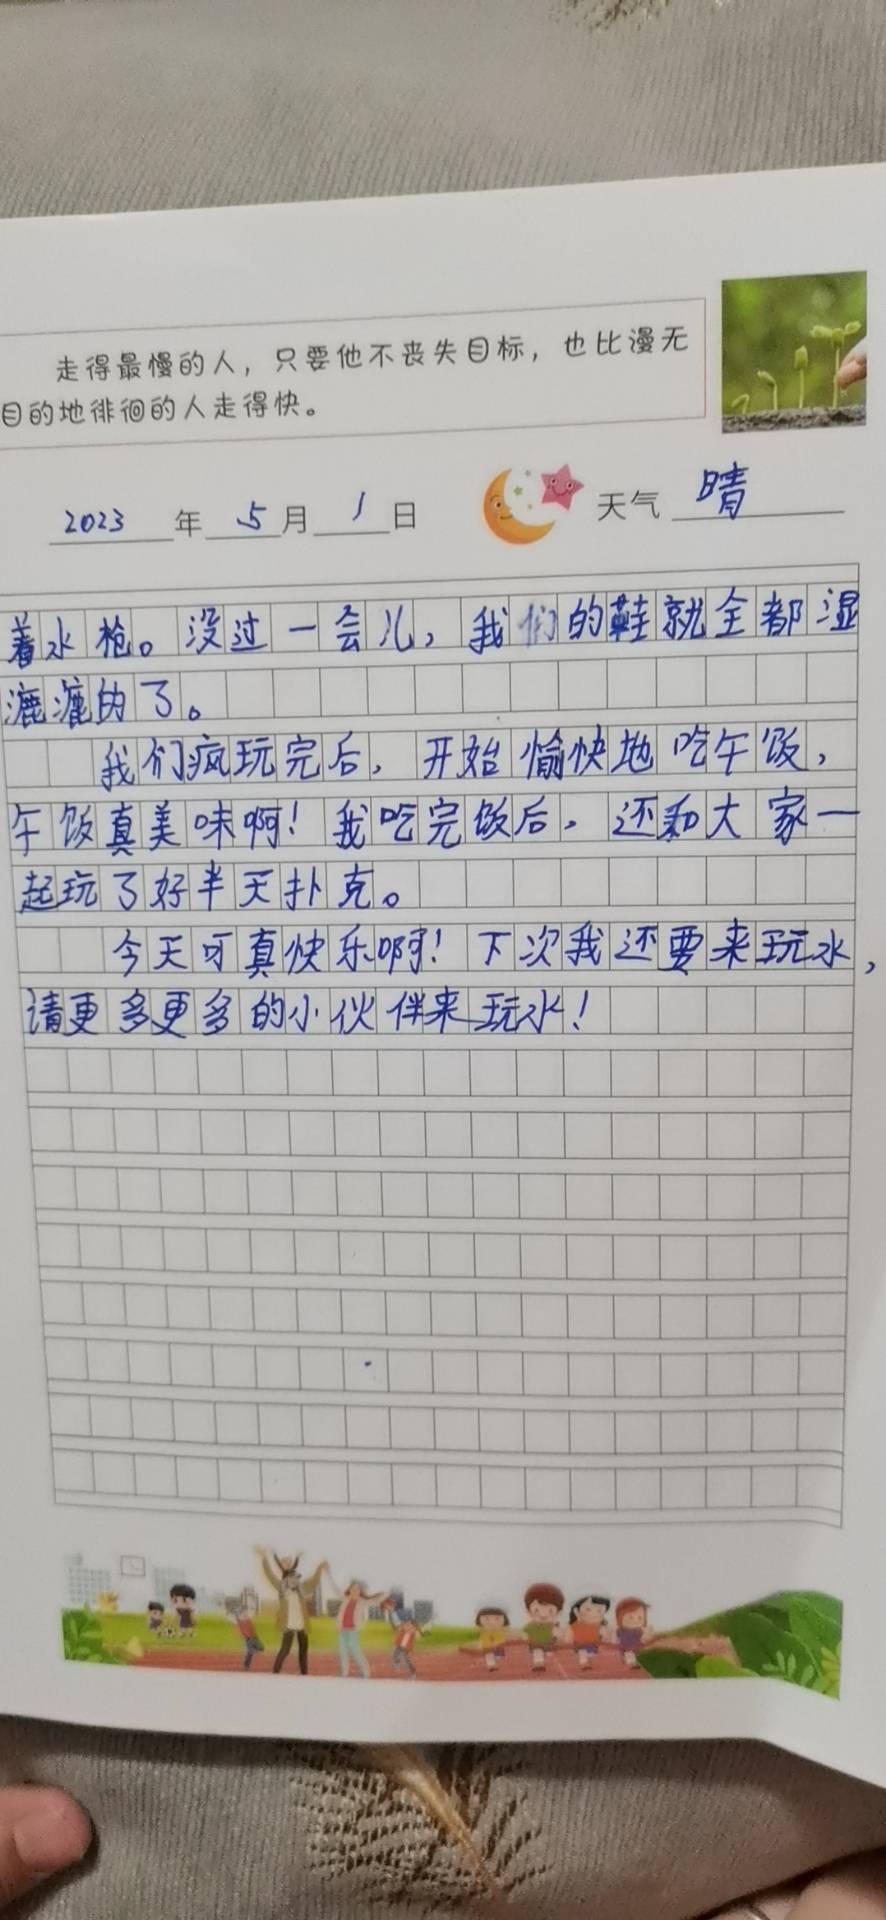 走得最慢的人，只要他不丧失目标，也比漫无
目的地徘徊的人走得快。
2023年5月1日 天气 晴
着水枪。没过一会儿，我们的鞋就全都湿
漉漉的了。
我们疯玩完后，开始愉快地吃午饭，
午饭真美味啊！我吃完饭后，还和大家一
起玩了好半天扑克。
今天可真快乐啊！下次我还要来玩水，
请更多更多的小伙伴来玩水！